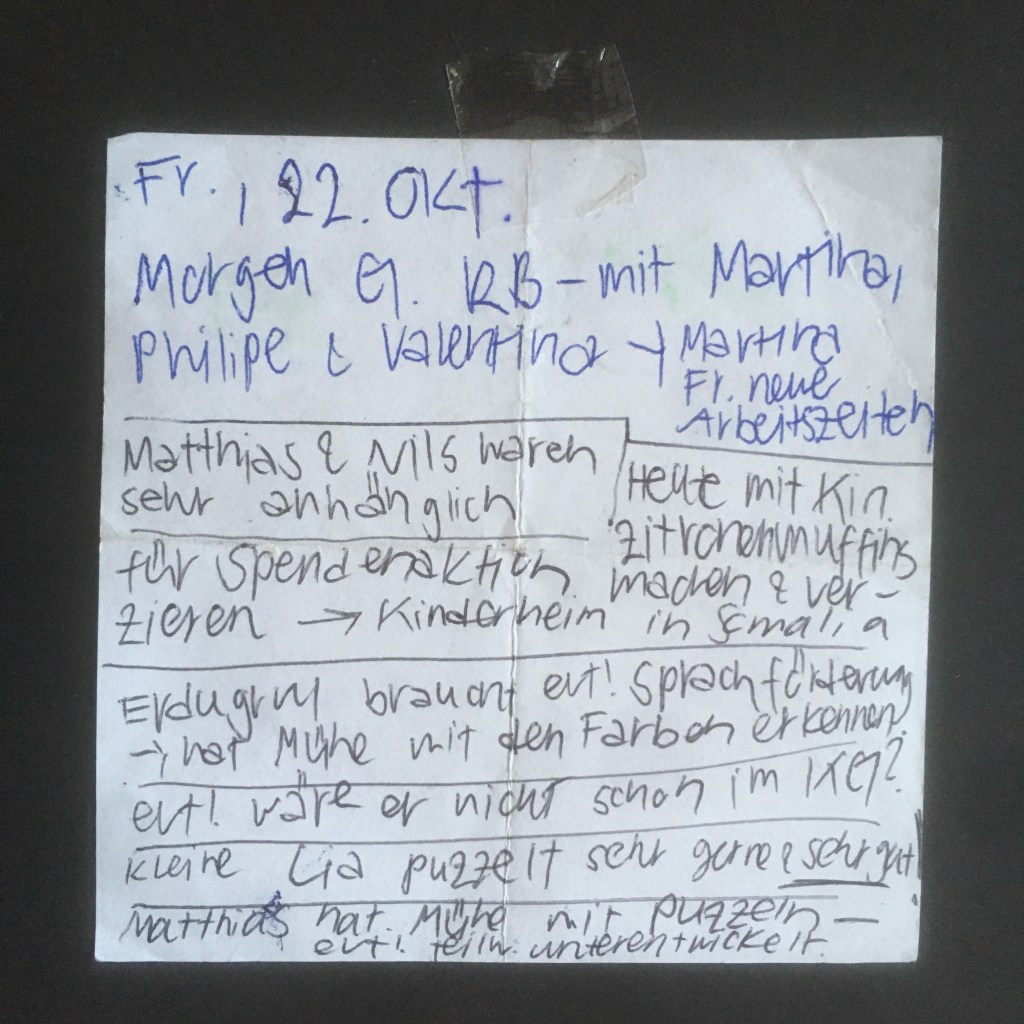 Fr., 22. Okt.
Morgen G. RB - mit Martina,
Philipe & Valentina → Martina
Fr. neue
Arbeitszeiten
Matthias & Nils waren
sehr anhänglich
Heute mit Kin.
Zitronenmuffins
machen & ver-
für Spendenaktion
zieren → Kinderheim in Somalia
Erdugrul braucht evt! Sprachförderung
→ hat Mühe mit den Farben erkennen
evt! wäre er nicht schon im 1 KG?
kleine Lia puzzelt sehr gerne & sehr gut!
Matthias hat Mühe mit Puzzeln –
evt! teilw. unterentwickelt.